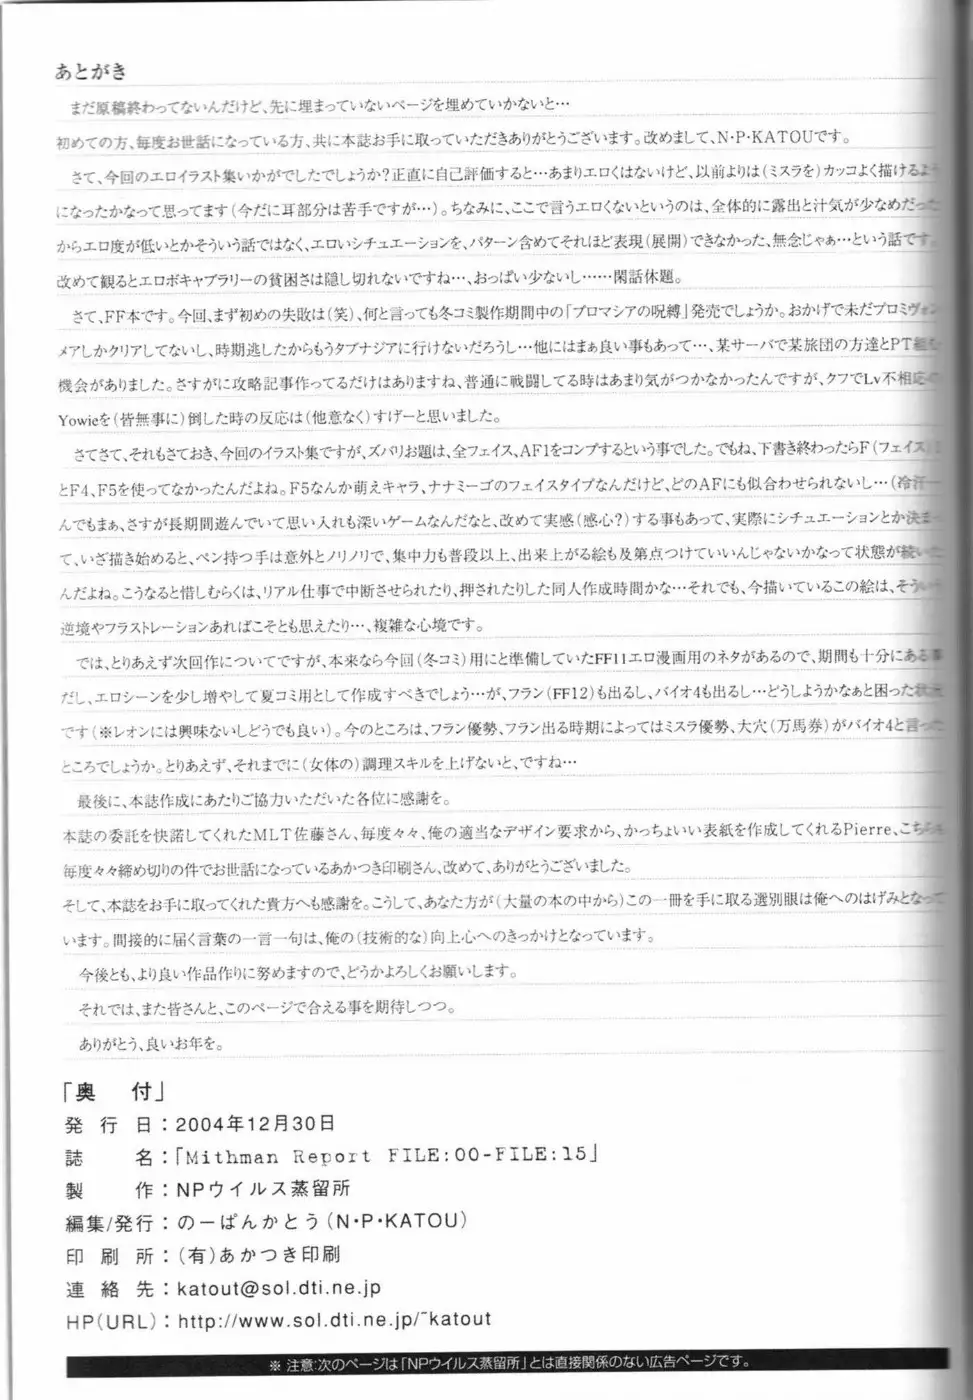 あとがき
まだ原稿終わってないんだけど、先に埋まっていないページを埋めていかないと…
初めての方、毎度お世話になっている方、共に本誌お手に取っていただきありがとうございます。改めまして、N・P・KATOUです。
さて、今回のエロイラスト集いかがでしたでしょうか?正直に自己評価すると…あまりエロくはないけど、以前よりは(ミスラを)カッコよく描けるよう
になったかなって思ってます(今だに耳部分は苦手ですが…)。ちなみに、ここで言うエロくないというのは、全体的に露出と汁気が少なめだった
からエロ度が低いとかそういう話ではなく、エロいシチュエーションを、パターン含めてそれほど表現(展開)できなかった、無念じゃぁ…という話です。
改めて観るとエロボキャブラリーの貧困さは隠し切れないですね…、おっぱい少ないし……閑話休題。
さて、FF本です。今回、まず初めの失敗は(笑)、何と言っても冬コミ製作期間中の「プロマシアの呪縛」発売でしょうか。おかげで未だプロミヴォン
メアしかクリアしてないし、時期逃したからもうタブナジアに行けないだろうし…他にはまぁ良い事もあって…、某サーバで某旅団の方達とPT組む
機会がありました。さすがに攻略記事作ってるだけはありますね、普通に戦闘してる時はあまり気がつかなかったんですが、クフでLv不相応
Yowieを(皆無事に)倒した時の反応は(他意なく)すげーと思いました。
さてさて、それもさておき、今回のイラスト集ですが、ズバリお題は、全フェイス、AF1をコンプするという事でした。でもね、下書き終わったらF(フェイス)
とF4、F5を使ってなかったんだよね。F5なんか萌えキャラ、ナナミーゴのフェイスタイプなんだけど、どのAFにも似合わせられないし…(冷汗
んでもまぁ、さすが長期間遊んでいて思い入れも深いゲームなんだなと、改めて実感(感心?)する事もあって、実際にシチュエーションとか決まっ
て、いざ描き始めると、ペン持つ手は意外とノリノリで、集中力も普段以上、出来上がる絵も及第点つけていいんじゃないかなって状態が続いた
んだよね。こうなると惜しむらくは、リアル仕事で中断させられたり、押されたりした同人作成時間かな…それでも、今描いているこの絵は、そういう
逆境やフラストレーションあればこそとも思えたり…、複雑な心境です。
では、とりあえず次回作についてですが、本来なら今回(冬コミ)用にと準備していたFF11エロ漫画用のネタがあるので、期間も十分にある事
だし、エロシーンを少し増やして夏コミ用として作成すべきでしょう…が、フラン(FF12)も出るし、バイオ4も出るし…どうしようかなぁと困った状況
です(※レオンには興味ないしどうでも良い)。今のところは、フラン優勢、フラン出る時期によってはミスラ優勢、大穴(万馬券)がバイオ4と言った
ところでしょうか。とりあえず、それまでに(女体の)調理スキルを上げないと、ですね…
最後に、本誌作成にあたりご協力いただいた各位に感謝を。
本誌の委託を快諾してくれたMLT佐藤さん、毎度々々、俺の適当なデザイン要求から、かっちょいい表紙を作成してくれるPierre、こちらも
毎度々々締め切りの件でお世話になっているあかつき印刷さん、改めて、ありがとうございました。
そして、本誌をお手に取ってくれた貴方へも感謝を。こうして、あなた方が(大量の本の中から)この一冊を手に取る選別眼は俺へのはげみとなって
います。間接的に届く言葉の一言一句は、俺の(技術的な)向上心へのきっかけとなっています。
今後とも、より良い作品作りに努めますので、どうかよろしくお願いします。
それでは、また皆さんと、このページで合える事を期待しつつ。
ありがとう、良いお年を。
「奥 付」
発 行 日:2004年12月30日
誌 名:「Mithman Report FILE:00-FILE:15」
製 作:NPウイルス蒸留所
編集/発行:のーぱんかとう(N・P・KATOU)
印 刷 所:(有)あかつき印刷
連 絡 先:katout@sol.dti.ne.jp
HP(URL):http://www.sol.dti.ne.jp/~katout
※ 注意:次のページは「NPウイルス蒸留所」とは直接関係のない広告ページです。